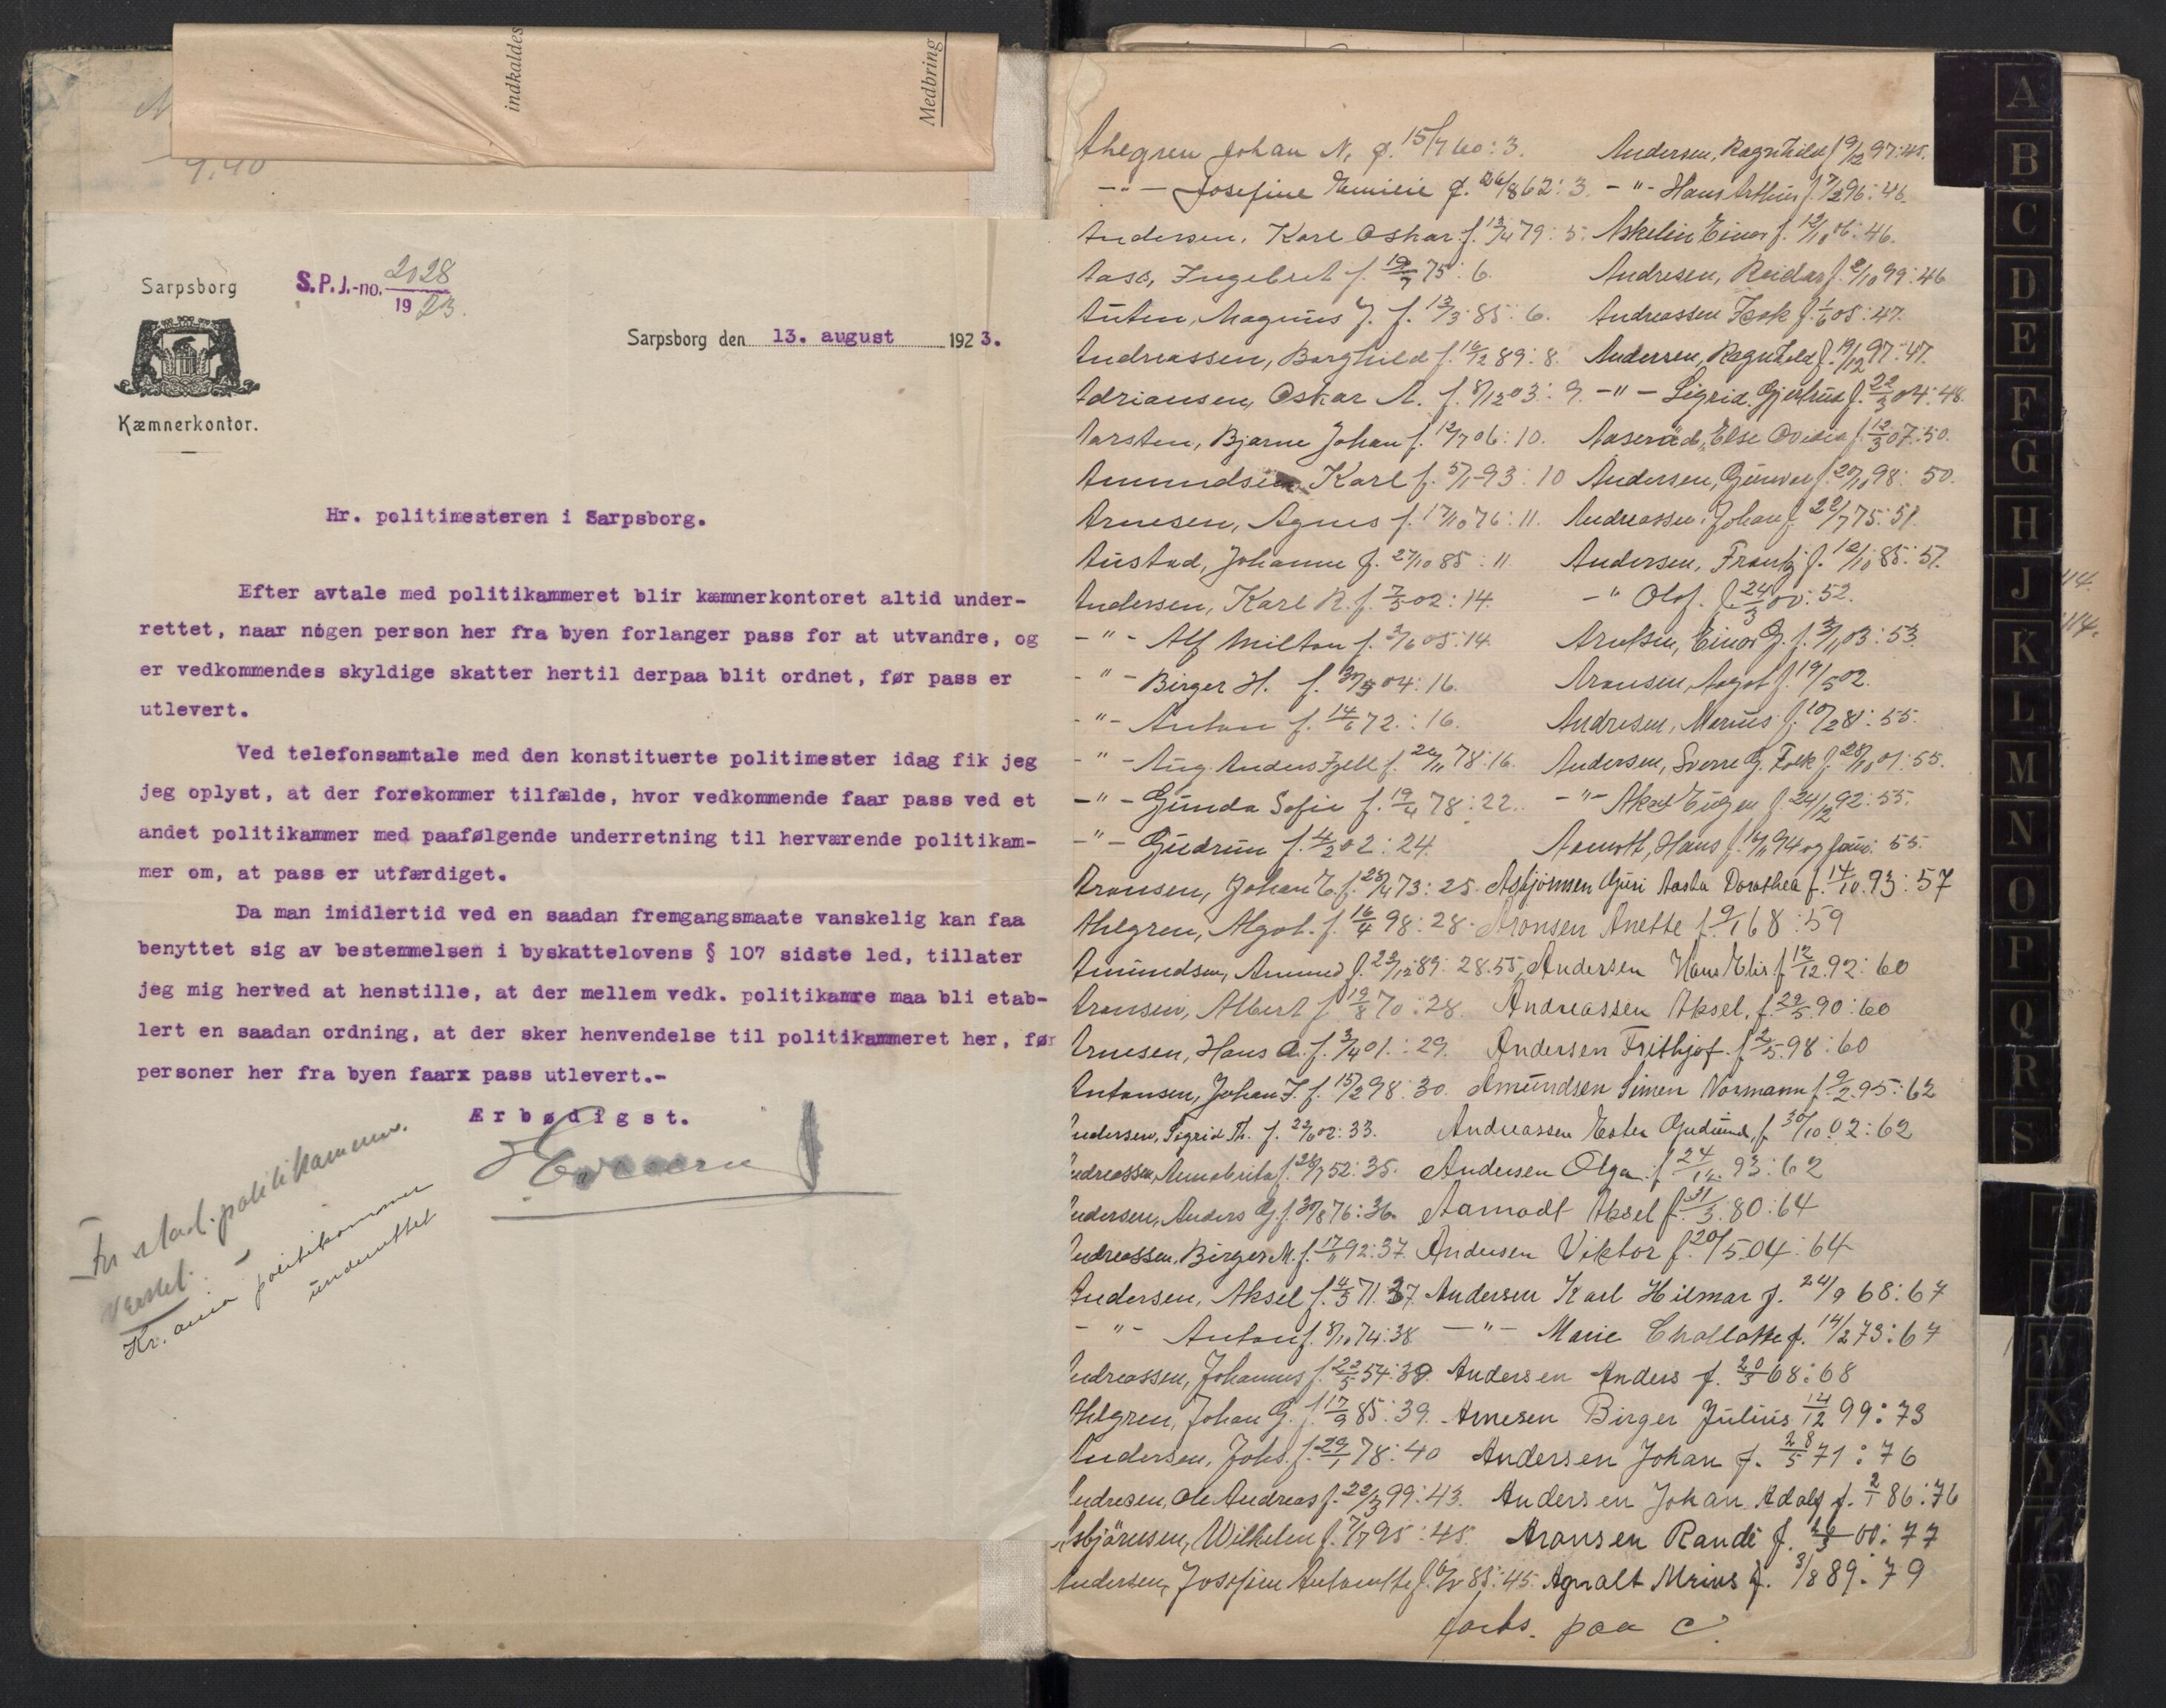 indkaldes
Medbring
9,40
Sarpsborg
S.P.J.-no. 2028
1923.
Kæmnerkontor.
Sarpsborg den 13. august 1923.
Hr. politimesteren i Sarpsborg.
Efter avtale med politikammeret blir kæmnerkontoret altid under-
rettet, naar nogen person her fra byen forlanger pass for at utvandre, og
er vedkommendes skyldige skatter hertil derpaa blit ordnet, før pass er
utlevert.
Ved telefonsamtale med den konstituerte politimester idag fik jeg
jeg oplyst, at der forekommer tilfælde, hvor vedkommende faar pass ved et
andet politikammer med paafølgende underretning til herværende politikam-
mer om, at pass er utfærdiget.
Da man imidlertid ved en saadan fremgangsmaate vanskelig kan faa
benyttet sig av bestemmelsen i byskattelovens § 107 sidste led, tillater
jeg mig herved at henstille, at der mellem vedk. politikamre maa bli etab-
lert en saadan ordning, at der sker henvendelse til politikammeret her, før
personer her fra byen faarx pass utlevert.-
Ærbødigst.
Fr.stad. politikammer
varslet.
Kr.ania politikammer
underrettet
Ahlgren Johan N. f. 15/7 60: 3.
-"- Josefine Emilie f. 26/8 62: 3.
Andersen, Karl Oskar f. 13/4 79: 5.
Aase, Ingebret f. 19/7 75: 6.
Auten, Magnus J. f. 13/3 85: 6.
Andreassen, Borghild f. 16/12 89: 8.
Adriansen, Oskar A. f. 8/12 03: 9.
Aarsten, Bjarne Johan f. 12/7 06: 10.
Amundsen Karl f. 5/1-93: 10
Arnesen, Agnes f. 17/10 76: 11.
Austad, Johanne f. 27/10 85: 11
Andersen, Karl R. f. 7/5 02: 14.
-"- Alf Milton f. 3/6 05: 14.
-"- Birger H. f. 30/9 04: 16.
-"- Anton f. 14/6 72.: 16.
-"- Aug. Anders Fjell f. 26/11 78: 16.
-"- Gunda Sofie f. 19/4 78: 22.
-"- Gudrun f. 4/2 02: 24.
Aronsen, Johan E. f. 28/4 73: 25.
Ahlgren, Algot. f. 16/4 98: 28.
Amundsen, Amund f. 23/12 89: 28.55,
Aronsen, Albert f. 19/8 70: 28.
Arnesen, Hans A. f. 3/4 01.: 29.
Antonsen, Johan F. f. 15/2 98: 30.
Andersen, Sigrid Th. f. 22/6 02: 33.
Andreassen, Annabrita f. 26/7 52: 35.
Andersen, Anders G. f. 30/8 76: 36.
Andreassen, Birger M. f. 17/11 92: 37.
Andersen, Aksel f. 4/5 71. 37.
-"- Anton f. 8/10 74: 38
Andreassen, Johannes f. 22/5 54: 39.
Ahlgren, Johan G. f. 17/9 85: 39.
Andersen, Johs. f. 29/1 78: 40
Andresen, Ole Andreas f. 22/3 99: 43.
Asbjörnsen, Wilhelm f. 7/7 95: 45.
Andersen, Josefine Antonette f. 85: 45.
Andersen, Ragnhild f 19/12 97: 45.
-"- Hans Arthur f. 7/2 96: 46.
Askelin Einar f. 12/10 06: 46.
Andresen, Reidar f. 2/10 99: 46
Andreassen Isak f. 1/6 05: 47.
Andersen, Ragnhild f. 19/12 97: 47.
-"- Sigrid Gjertrud f. 22/3 04: 48.
Aaserød, Else Ovidia f. 12/3 07: 50.
Andersen, Gunvor f. 20/10 98: 50.
Andreassen, Johan f. 22/7 75: 51.
Andersen, Frantz f. 12/10 85: 51.
-" Olof. f. 24/3 00: 52.
Arntsen, Einar G. f. 3/11 03: 53.
Aronsen, Aagot f. 19/5 02.
Andresen, Marius f. 10/2 81: 55.
Andersen, Sverre G. Falk f. 28/10 01: 55.
-"- Aksel Eugen f. 24/12 92: 55.
Aamoth, Hans f. 16/11 94 og fam: 55.
Asbjørnsen Guri Aasta Dorothea f. 14/10. 93: 57
Aronsen Anette f. 9/1 68: 59
Andersen Hans Elis f 12/12. 92: 60
Andreassen Aksel. f. 29/5. 90: 60
Andersen Frithjof. f. 2/5. 98: 60
Amundsen Simen Normann f. 9/2. 95: 62
Andreassen Ester Gudrund, f 30/10. 02: 62
Andersen Olga. f 24/12. 93: 62
Aamodt Aksel f. 31/3. 80: 64
Andersen Viktor f. 20/5. 04: 64
Andersen Karl Hilmar f. 24/9 68: 67
-"- Marie Challotte f. 14/2 73: 67
Andersen Anders f. 20/5 68: 68
Arnesen Birger Julius 14/12 99: 73
Andersen Johan f. 28/5 71: 76
Andersen Johan Adolf f. 2/1 86: 76
Aronsen Randi f. 26/3 00: 77
Agnalt Mrius f. 3/8 89: 79
forts. paa C.
A
B
C
D
E
F
G
H
J
K
L
M
N
O
P
Q
R
S
114.
114.